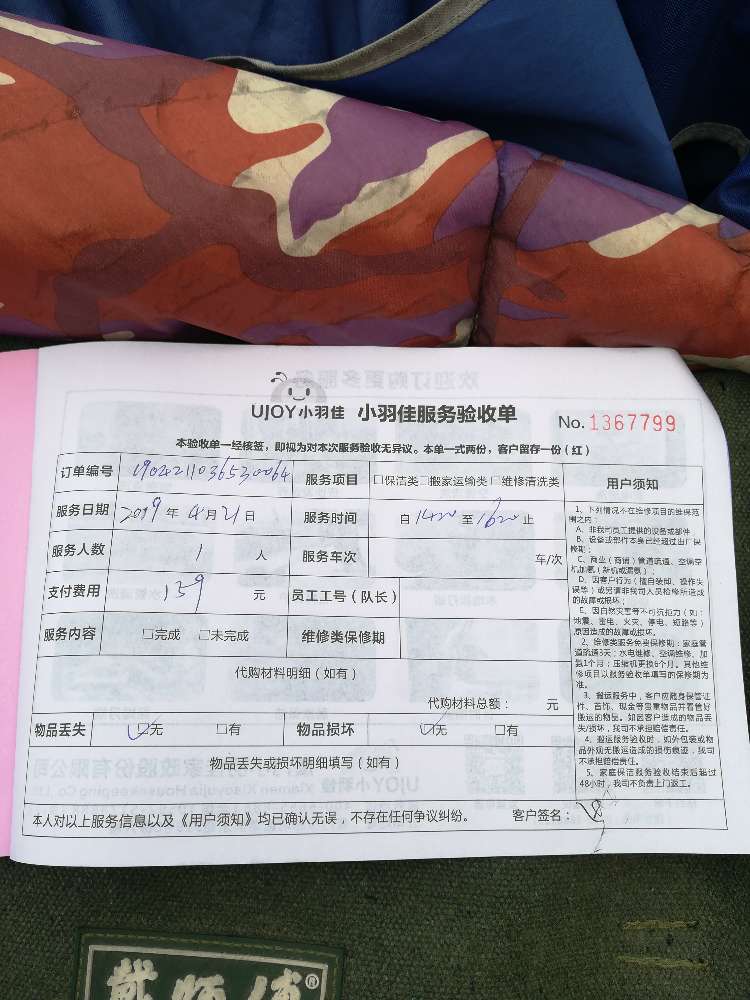 UJOY小羽佳 小羽佳服务验收单 No. 1367799
本验收单一经核签，即视为对本次服务验收无异议。本单一式两份，客户留存一份（红）
订单编号 1904211036530064 服务项目 □保洁类□搬家运输类□维修清洗类
服务日期 2019年4月21日 服务时间 自1420至1620止
服务人数 1 人 服务车次 车/次
支付费用 139 元 员工工号（队长）
服务内容 □完成 □未完成 维修类保修期
代购材料明细（如有）
代购材料总额： 元
物品丢失 ☑无 □有 物品损坏 ☑无 □有
物品丢失或损坏明细填写（如有）
本人对以上服务信息以及《用户须知》均已确认无误，不存在任何争议纠纷。 客户签名：
用户须知
1、下列情况不在维修项目的维保范
围之内：
A、非我司员工提供的设备或部件
B、设备或部件本身已经超过出厂保
修期；
C、商业（商铺）管道疏通、空调空
机加氨（新机或漏氨）；
D、因客户行为（擅自装卸、操作失
误等）或另请非我司人员检修所造成
的故障或损坏；
E、因自然灾害等不可抗拒力（如：
地震、雷电、火灾、停电、短路等）
原因造成的故障或损坏。
2、维修类服务免费保修期：家庭管
道疏通3天；水电维修、空调维修、加
氨1个月；压缩机更换6个月。其他维
修项目以服务验收单填写的保修期为
准。
3、搬运服务中，客户应随身保管证
件、首饰、现金等贵重物品并看管好
搬运的物品。如因客户造成的物品丢
失/损坏，我司不承担赔偿责任。
4、搬运服务验收时，如外包装或物
品外观无搬运造成的损伤痕迹，我司
不承担赔偿责任。
5、家庭保洁服务验收结束后超过
48小时，我司不负责上门返工。
戴师傅®